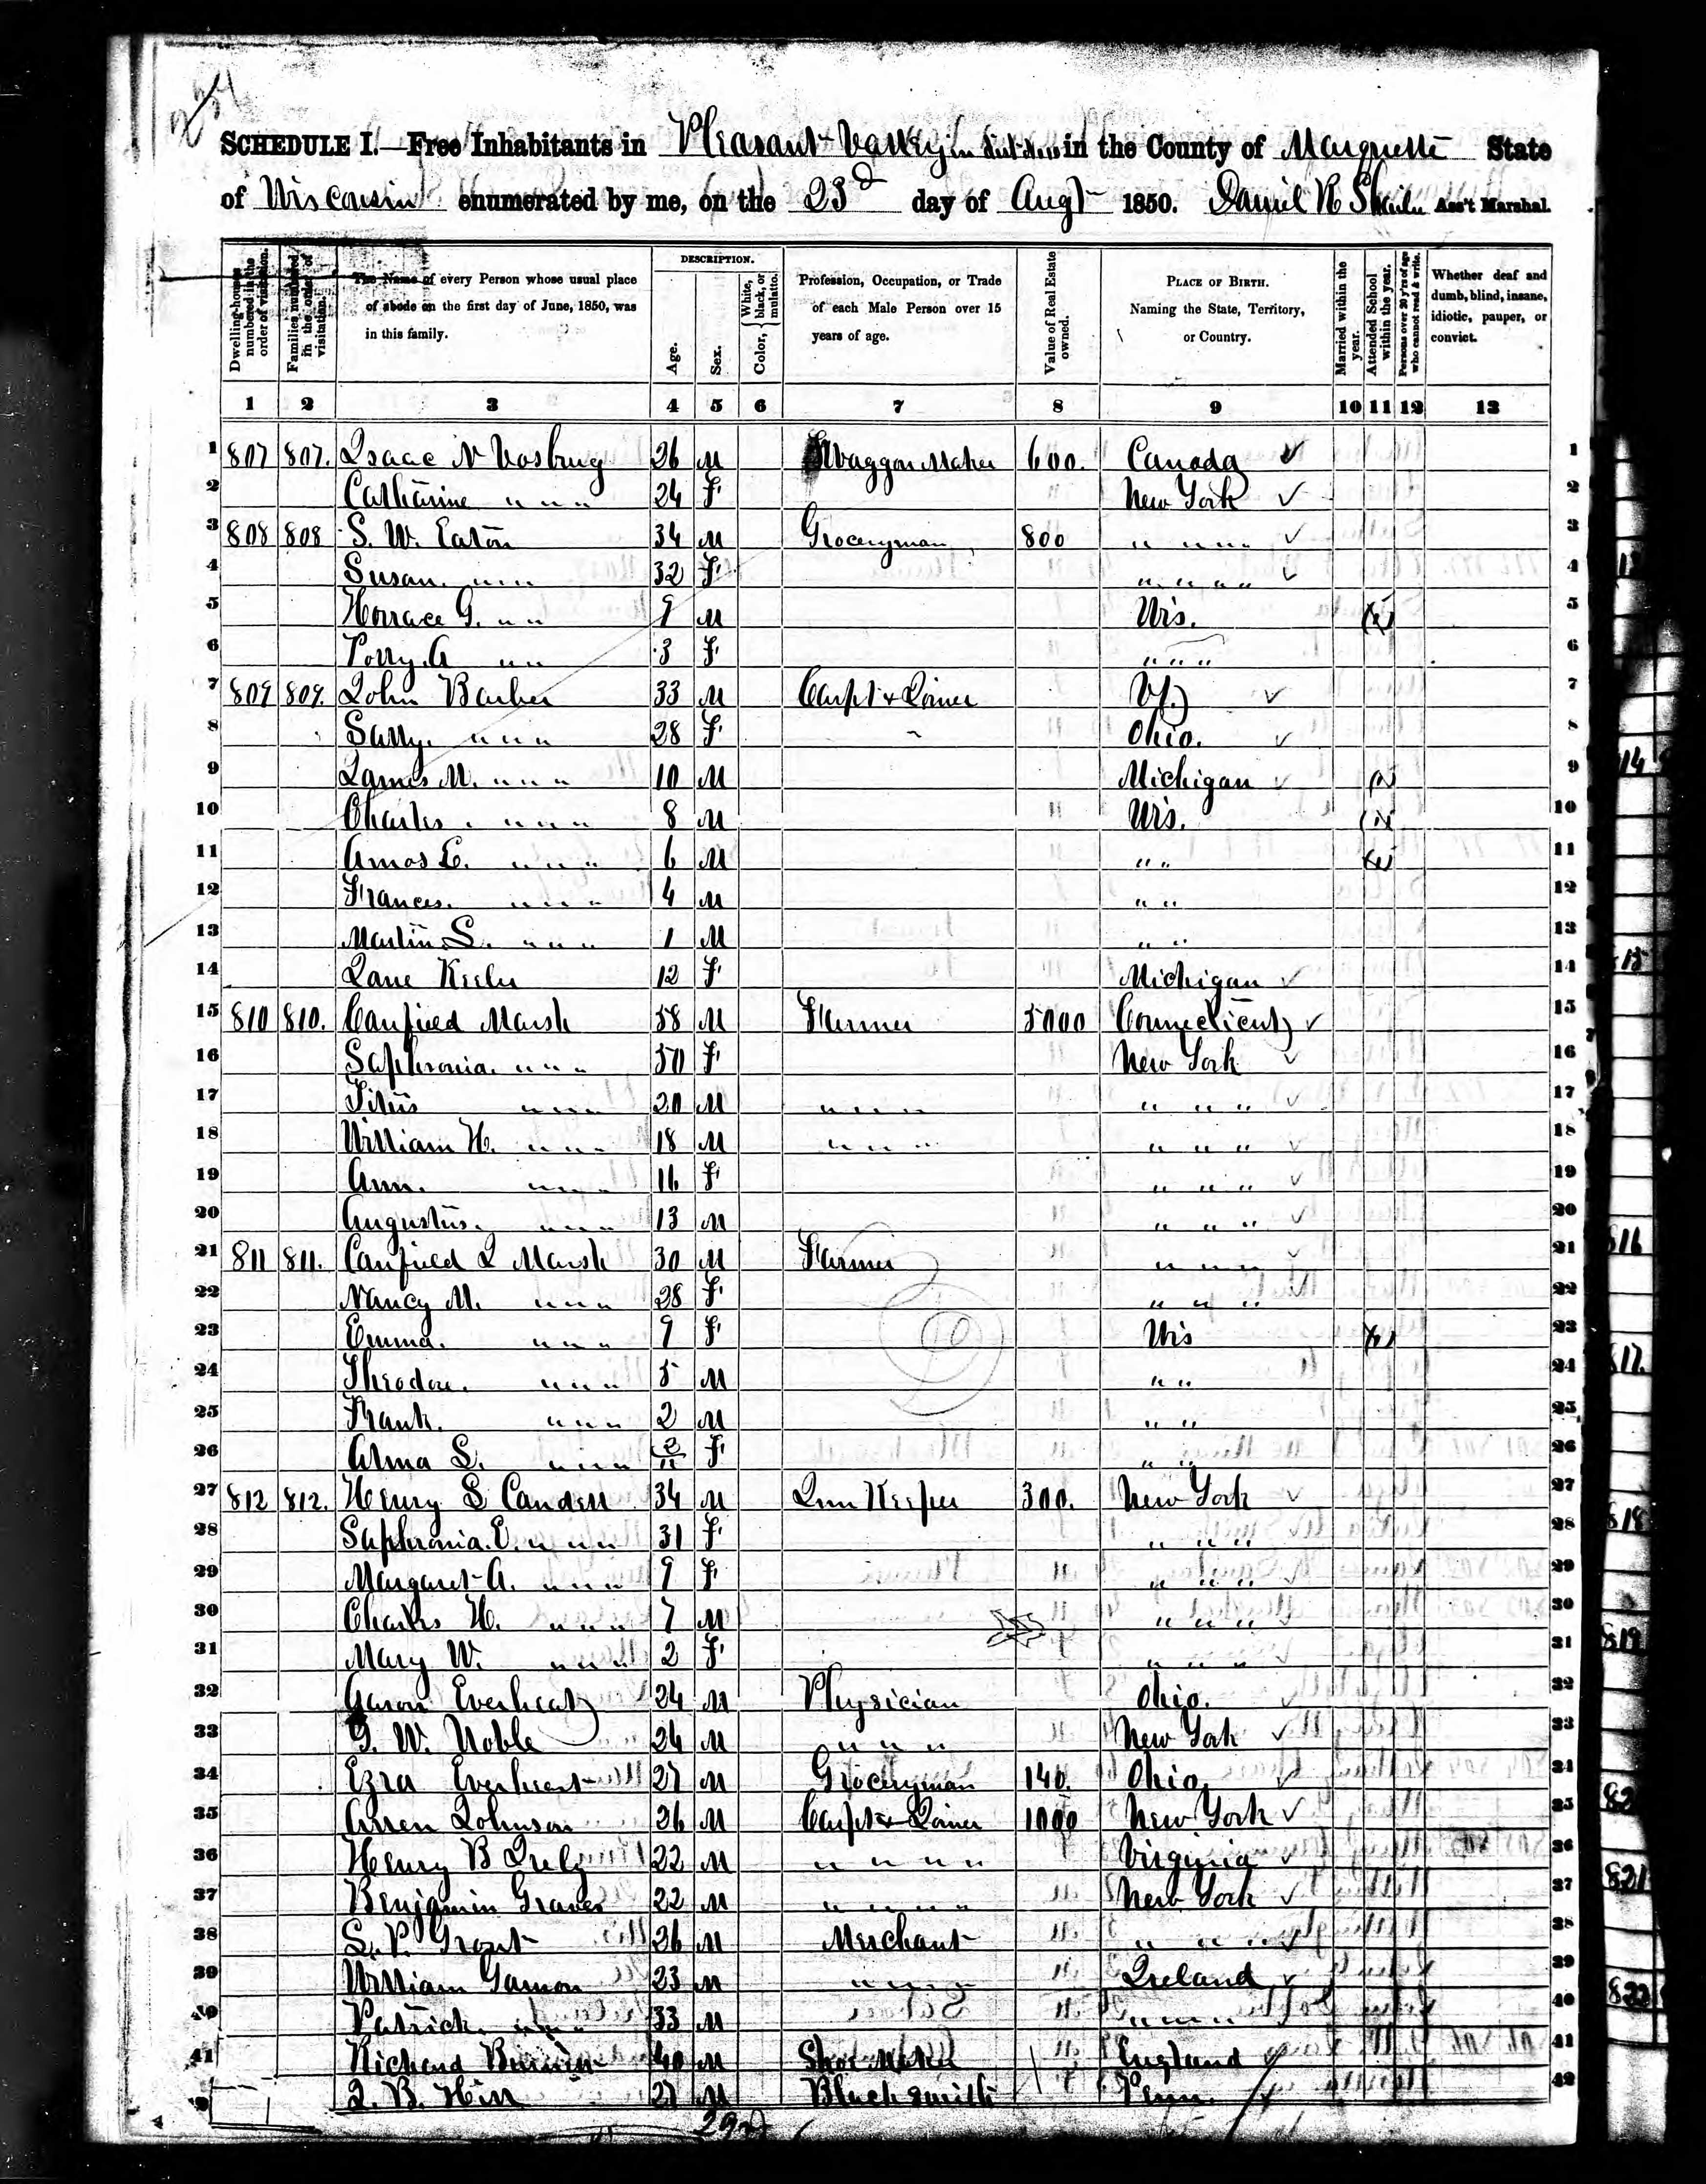 234
SCHEDULE I.—Free Inhabitants in Pleasant Valley in the County of Marquette State
of Wisconsin enumerated by me, on the 23d day of Augt 1850. Daniel R Ass't Marshal.
Dwelling-houses numbered in the order of visitation.
Families numbered in the order of visitation.
The Name of every Person whose usual place of abode on the first day of June, 1850, was in this family.
DESCRIPTION.
Age.
Sex.
Color, { White, black, or mulatto.
Profession, Occupation, or Trade of each Male Person over 15 years of age.
Value of Real Estate owned.
PLACE OF BIRTH. Naming the State, Territory, or Country.
Married within the year.
Attended School within the year.
Persons over 20 y'rs of age who cannot read & write.
Whether deaf and dumb, blind, insane, idiotic, pauper, or convict.
1 2 3 4 5 6 7 8 9 10 11 12 13
1 807 807. Isaac N Vosburg 26 M Waggon Maker 600. Canada ✓ 1
2 Catharine " " " 24 F New York ✓ 2
3 808 808 S. W. Eaton 34 M Groceryman 800 " " " " ✓ 3
4 Susan " " " 32 F " " " " ✓ 4
5 Horrace G. " " 9 M Wis. 5
6 Polly A " " 3 F " " " 6
7 809 809. John Barber 33 M Carpt & Joiner Vt. ✓ 7
8 Sally. " " " 28 F Ohio. ✓ 8
9 James M. " " " 10 M Michigan ✓ 9
10 Charles " " " 8 M Wis. 10
11 Amos E. " " " 6 M " " 11
12 Frances. " " " 4 M " " 12
13 Martin S. " " " 1 M " " 13
14 Jane Keeler 12 F Michigan ✓ 14
15 810 810. Canfield Marsh 58 M Farmer 5000 Connecticut ✓ 15
16 Saphronia. " " " 50 F New York ✓ 16
17 Titus " " " 20 M " " " " " " " ✓ 17
18 William H. " " " 18 M " " " " " " " ✓ 18
19 Ann. " " " 16 F " " " ✓ 19
20 Augustus. " " " 13 M " " " ✓ 20
21 811 811. Canfield J Marsh 30 M Farmer " " " ✓ 21
22 Nancy M. " " " 28 F " " " 22
23 Emma. " " " 9 F Wis 23
24 Theodore. " " " 5 M " " 24
25 Frank. " " " 2 M " " 25
26 Alma S. " " " F " " 26
27 812 812. Henry S Candell 34 M Inn Keeper 300. New York ✓ 27
28 Saphronia. E. " " " 31 F " " " 28
29 Margaret A. " " " 9 F " " " 29
30 Charles H. " " " 7 M " " " 30
31 Mary W. " " " 2 F " " " 31
32 Aaron Everheart 24 M Physician Ohio. ✓ 32
33 G. W. Noble 24 M " " " New York ✓ 33
34 Ezra Everheart 27 M Groceryman 140. Ohio ✓ 34
35 Johnson 26 M Carpt & Joiner 1000 New York ✓ 35
36 Henry B 22 M " " " " Virginia ✓ 36
37 Benjamin Graves 22 M " " " " New York ✓ 37
38 S. P. Grout 26 M Merchant " " " ✓ 38
39 William Gamon 23 M " " " Ireland ✓ 39
40 Patrick " " " 33 M " " " " 40
41 Richard 40 M Shoe Maker England ✓ 41
J. B. Hill 27 M Blacksmith Penn. 42
814
815
816
817.
818
819
82
821
822